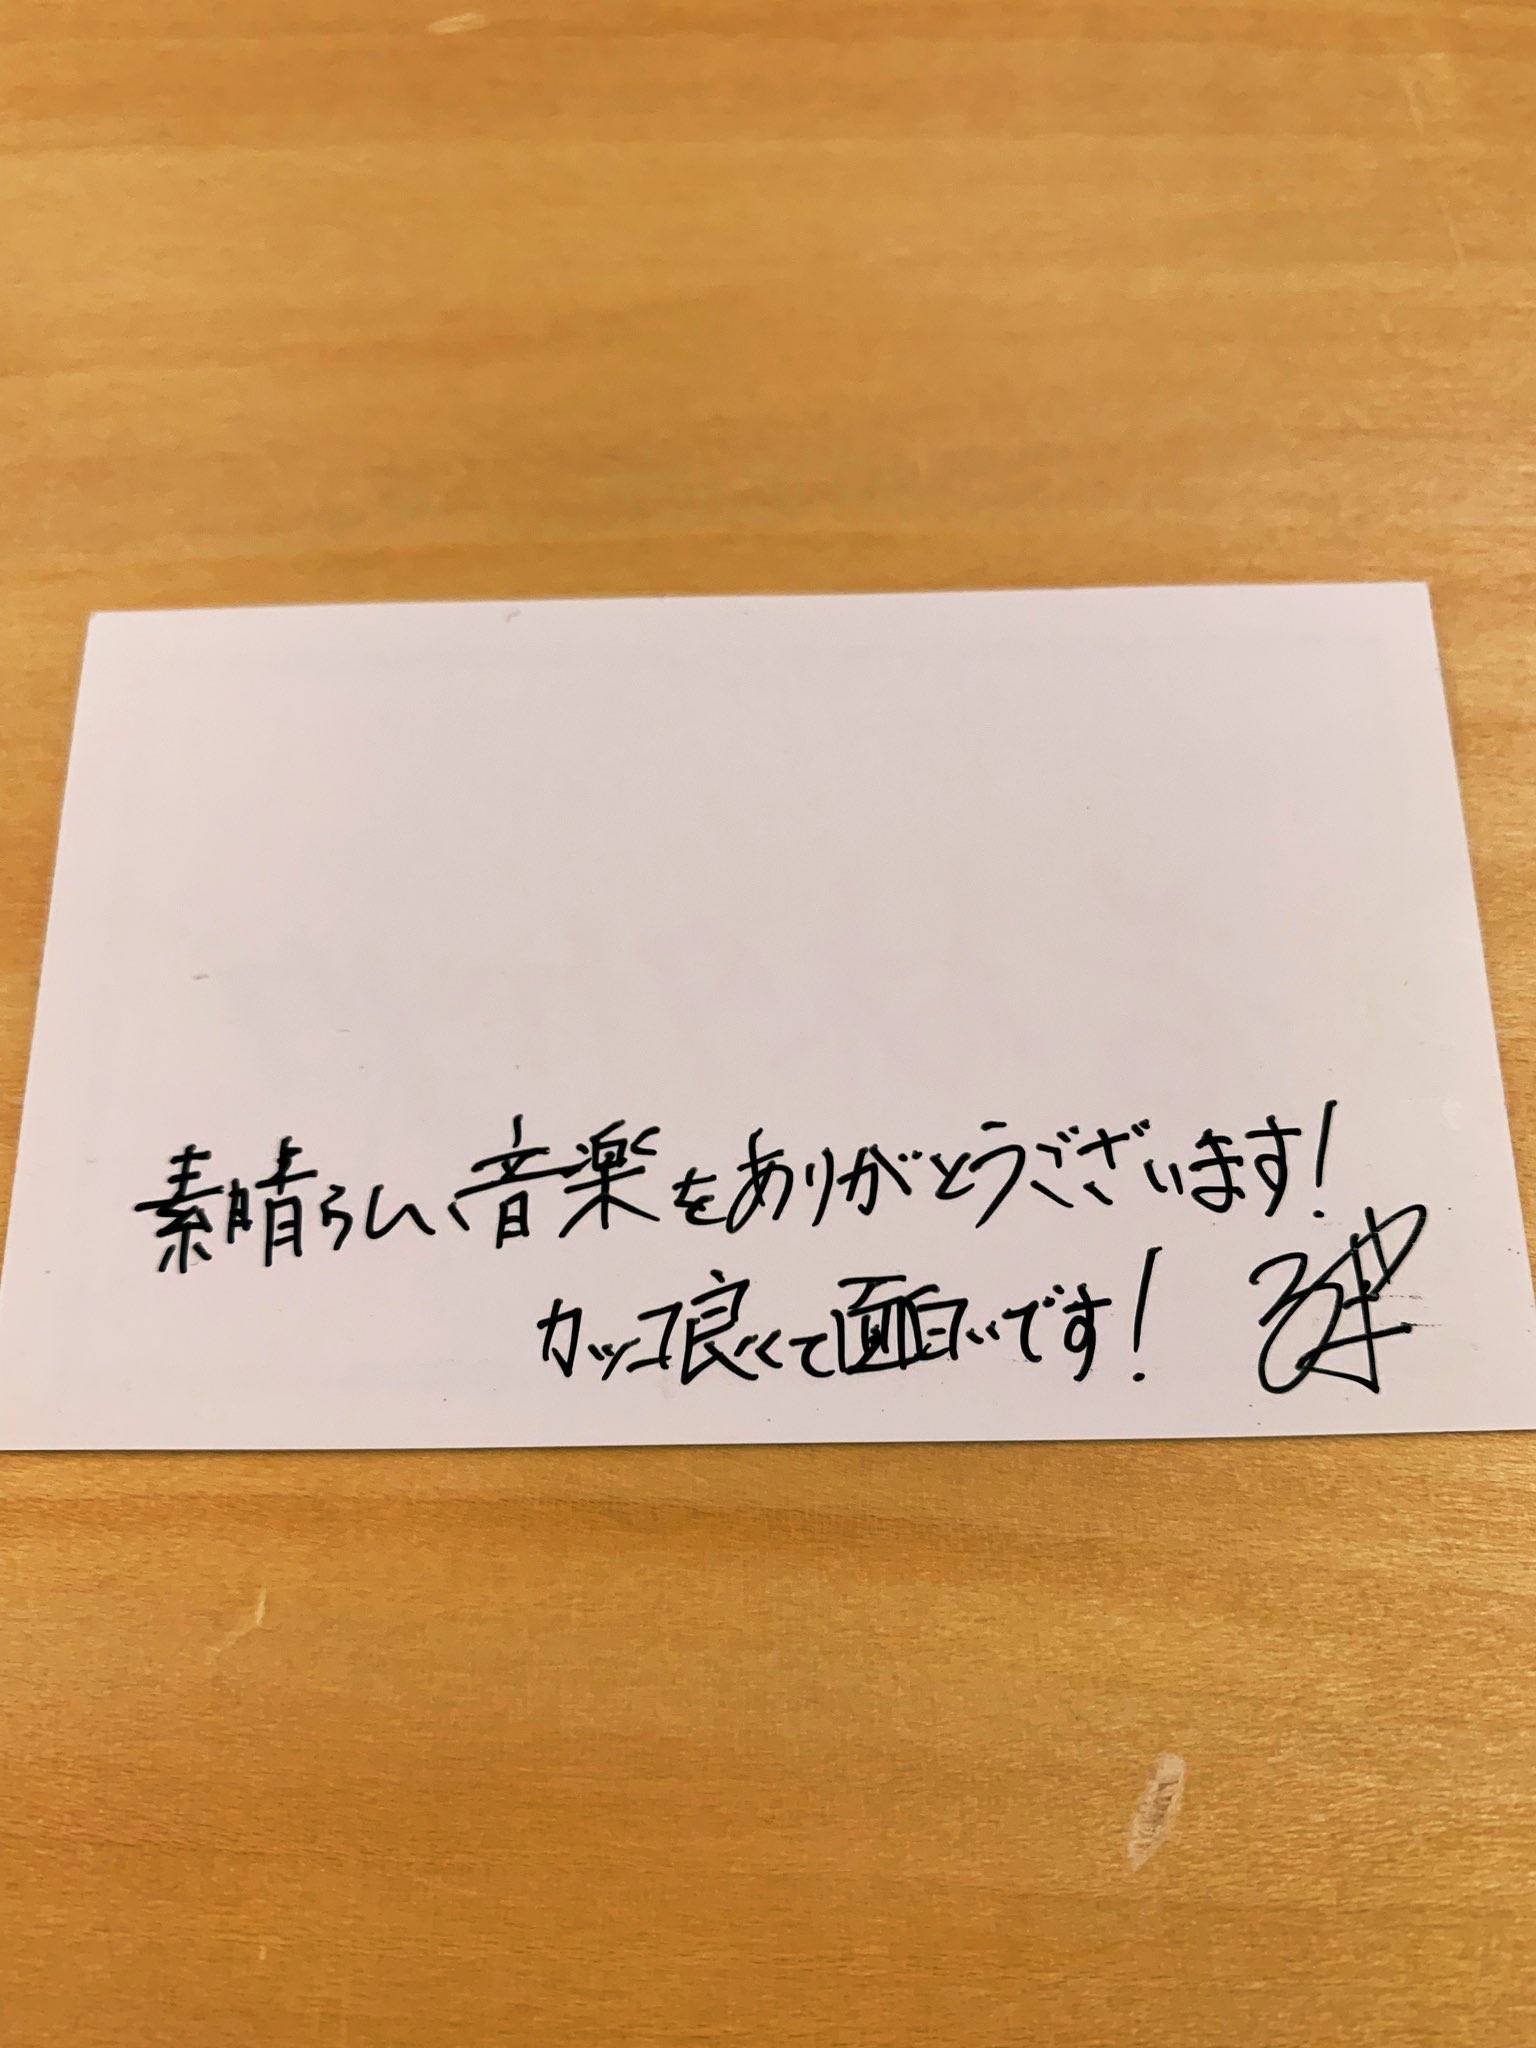 素晴らしい音楽をありがとうございます!
カッコ良くて面白いです!